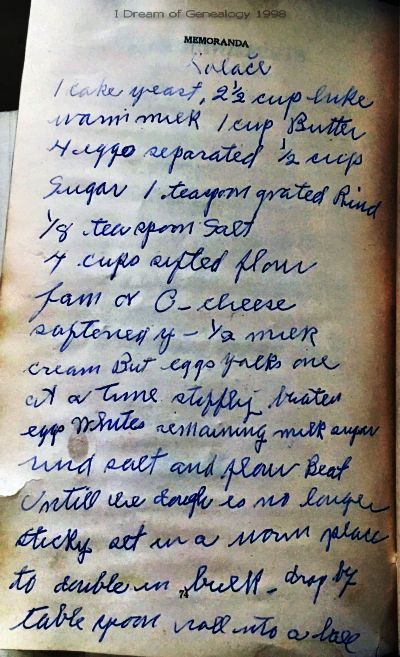 I Dream of Genealogy 1998
MEMORANDA
Kolače
1 cake yeast, 2½ cup luke
warm milk 1 cup Butter
4 eggs separated ½ cup
Sugar 1 teaspoon grated Rind
⅛ teaspoon Salt
4 cups sifted flour
Jam or C-cheese
softened y - ½ milk
cream But eggs yolks one
at a time stiffly beaten
eggs Whites remaining milk sugar
rind salt and flour Beat
Until the dough is no longer
sticky set in a warm place
to double in bulk - drop by
table spoon roll into a ball